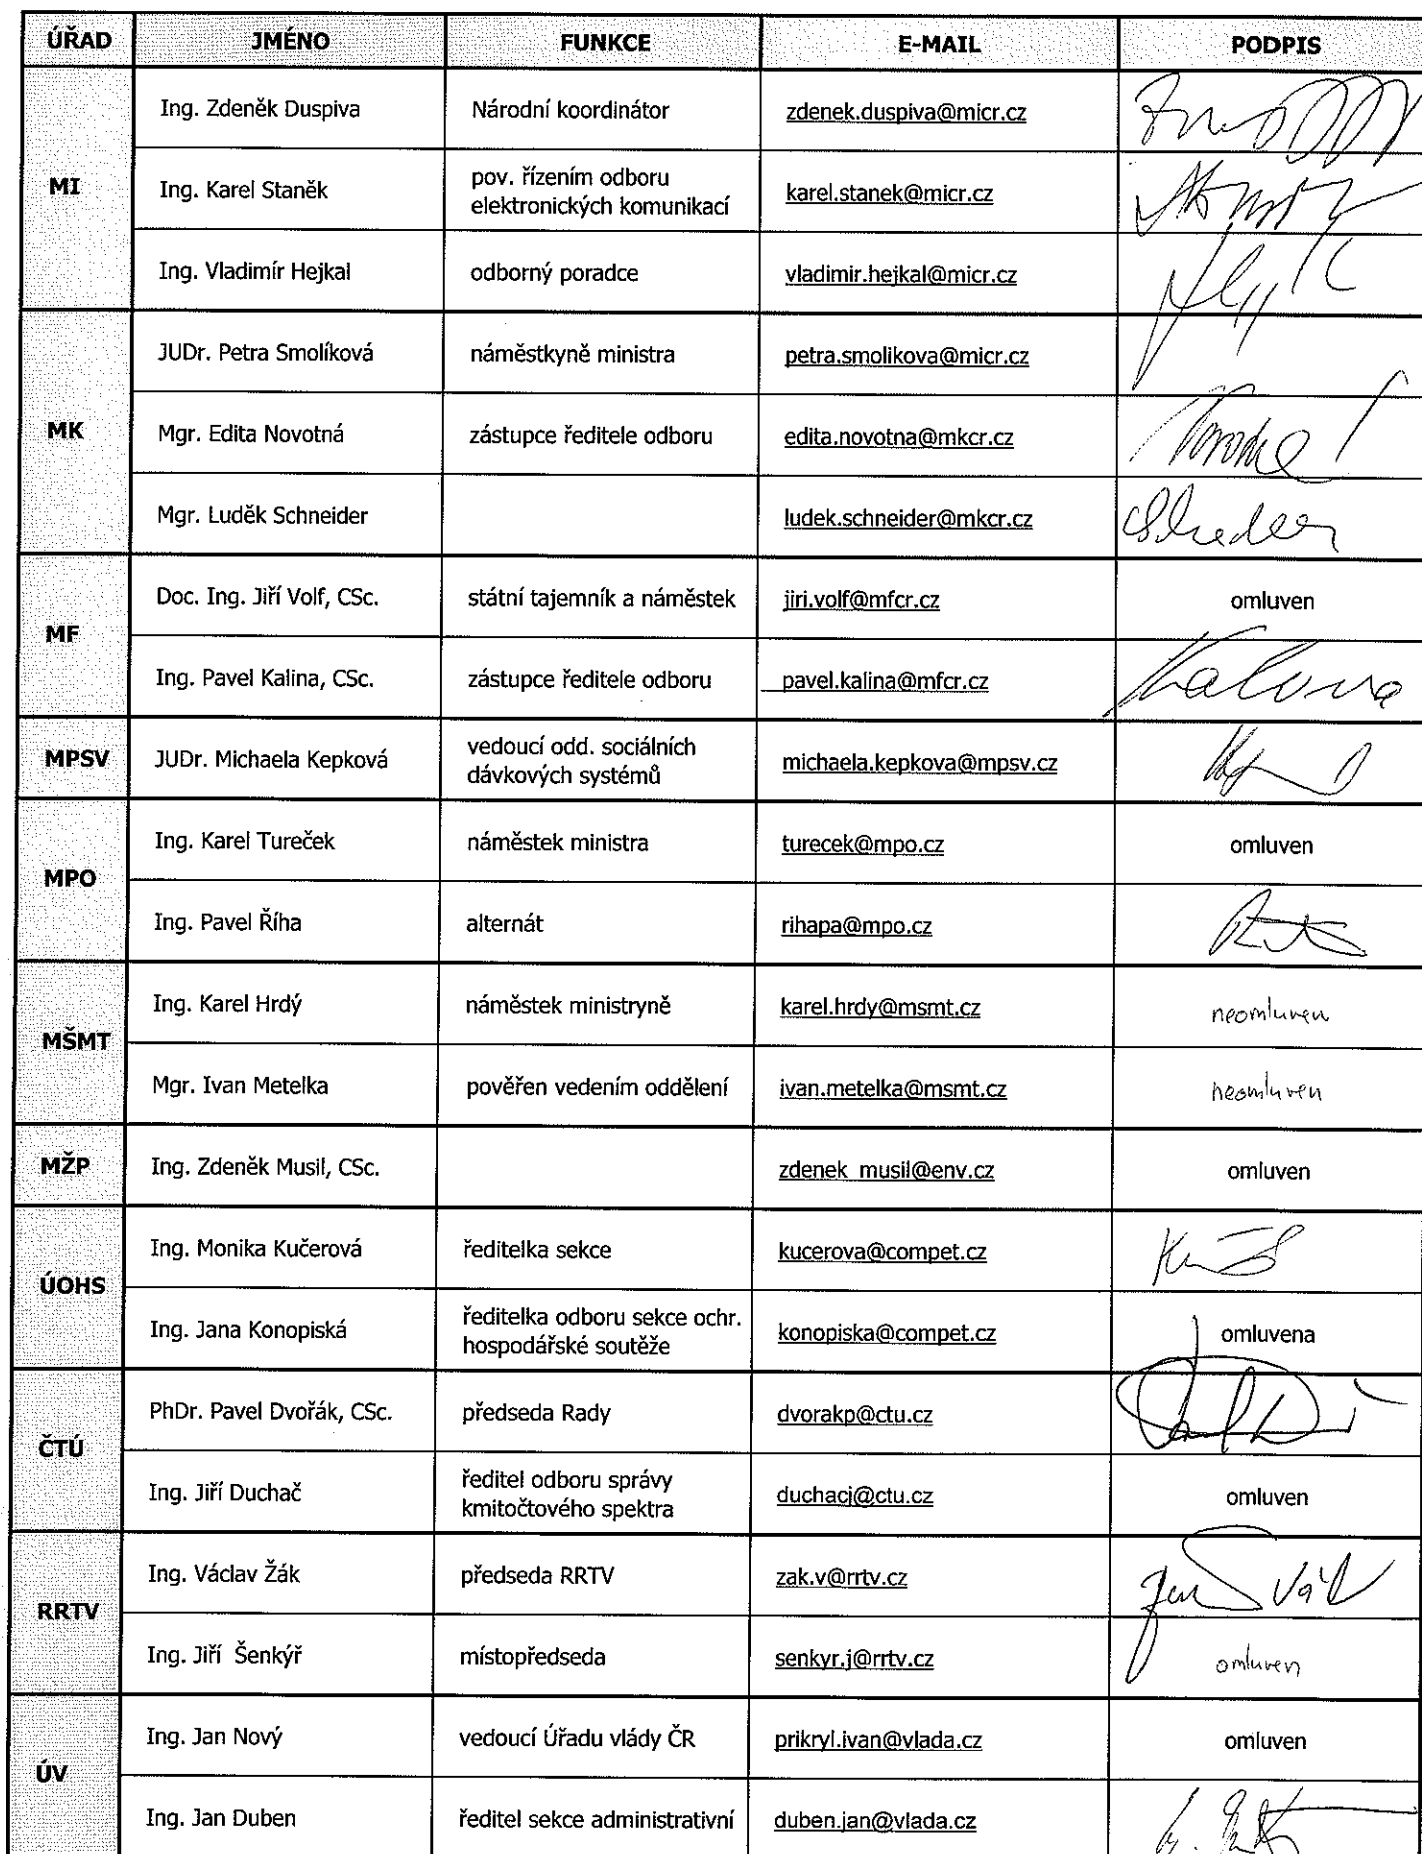 ÚŘAD JMÉNO FUNKCE E-MAIL PODPIS
MI
Ing. Zdeněk Duspiva Národní koordinátor zdenek.duspiva@micr.cz
Ing. Karel Staněk pov. řízením odboru elektronických komunikací karel.stanek@micr.cz
Ing. Vladimír Hejkal odborný poradce vladimir.hejkal@micr.cz
MK
JUDr. Petra Smolíková náměstkyně ministra petra.smolikova@micr.cz
Mgr. Edita Novotná zástupce ředitele odboru edita.novotna@mkcr.cz
Mgr. Luděk Schneider ludek.schneider@mkcr.cz
MF
Doc. Ing. Jiří Volf, CSc. státní tajemník a náměstek jiri.volf@mfcr.cz omluven
Ing. Pavel Kalina, CSc. zástupce ředitele odboru pavel.kalina@mfcr.cz
MPSV
JUDr. Michaela Kepková vedoucí odd. sociálních dávkových systémů michaela.kepkova@mpsv.cz
MPO
Ing. Karel Tureček náměstek ministra turecek@mpo.cz omluven
Ing. Pavel Říha alternát rihapa@mpo.cz
MŠMT
Ing. Karel Hrdý náměstek ministryně karel.hrdy@msmt.cz neomluven
Mgr. Ivan Metelka pověřen vedením oddělení ivan.metelka@msmt.cz neomluven
MŽP
Ing. Zdeněk Musil, CSc. zdenek_musil@env.cz omluven
ÚOHS
Ing. Monika Kučerová ředitelka sekce kucerova@compet.cz
Ing. Jana Konopiská ředitelka odboru sekce ochr. hospodářské soutěže konopiska@compet.cz omluvena
ČTÚ
PhDr. Pavel Dvořák, CSc. předseda Rady dvorakp@ctu.cz
Ing. Jiří Duchač ředitel odboru správy kmitočtového spektra duchacj@ctu.cz omluven
RRTV
Ing. Václav Žák předseda RRTV zak.v@rrtv.cz
Ing. Jiří Šenkýř místopředseda senkyr.j@rrtv.cz omluven
ÚV
Ing. Jan Nový vedoucí Úřadu vlády ČR prikryl.ivan@vlada.cz omluven
Ing. Jan Duben ředitel sekce administrativní duben.jan@vlada.cz